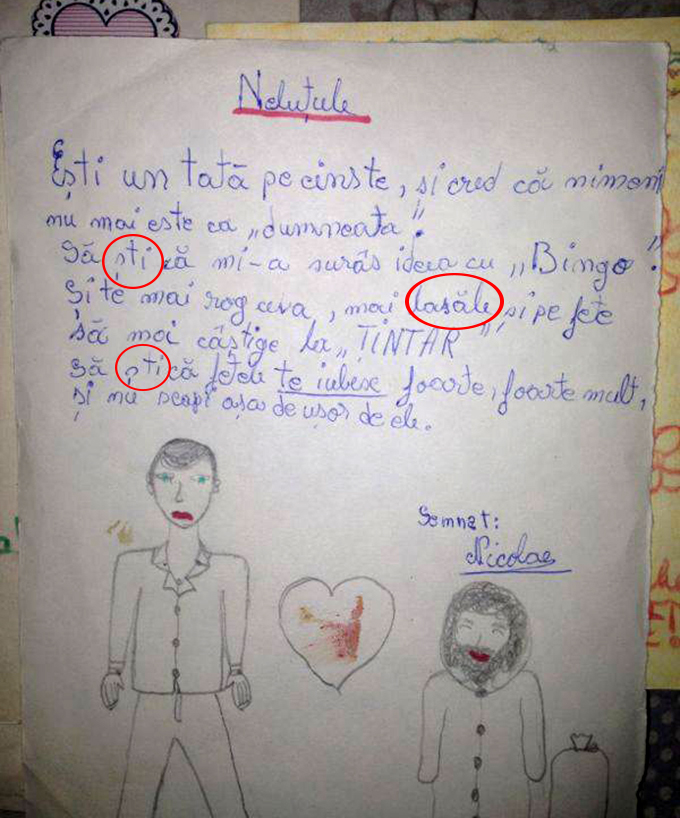 Neluțule
Ești un tată pe cinste, și cred că nimeni
nu mai este ca „dumneata".
Să ști că mi-a surâs ideea cu „Bingo".
Și te mai rog ceva, mai lasăle și pe fete
să mai câștige la „ȚINTAR"
Să ști că fetele te iubesc foarte, foarte mult,
și nu scapi așa de ușor de ele.
Semnat:
Nicolae